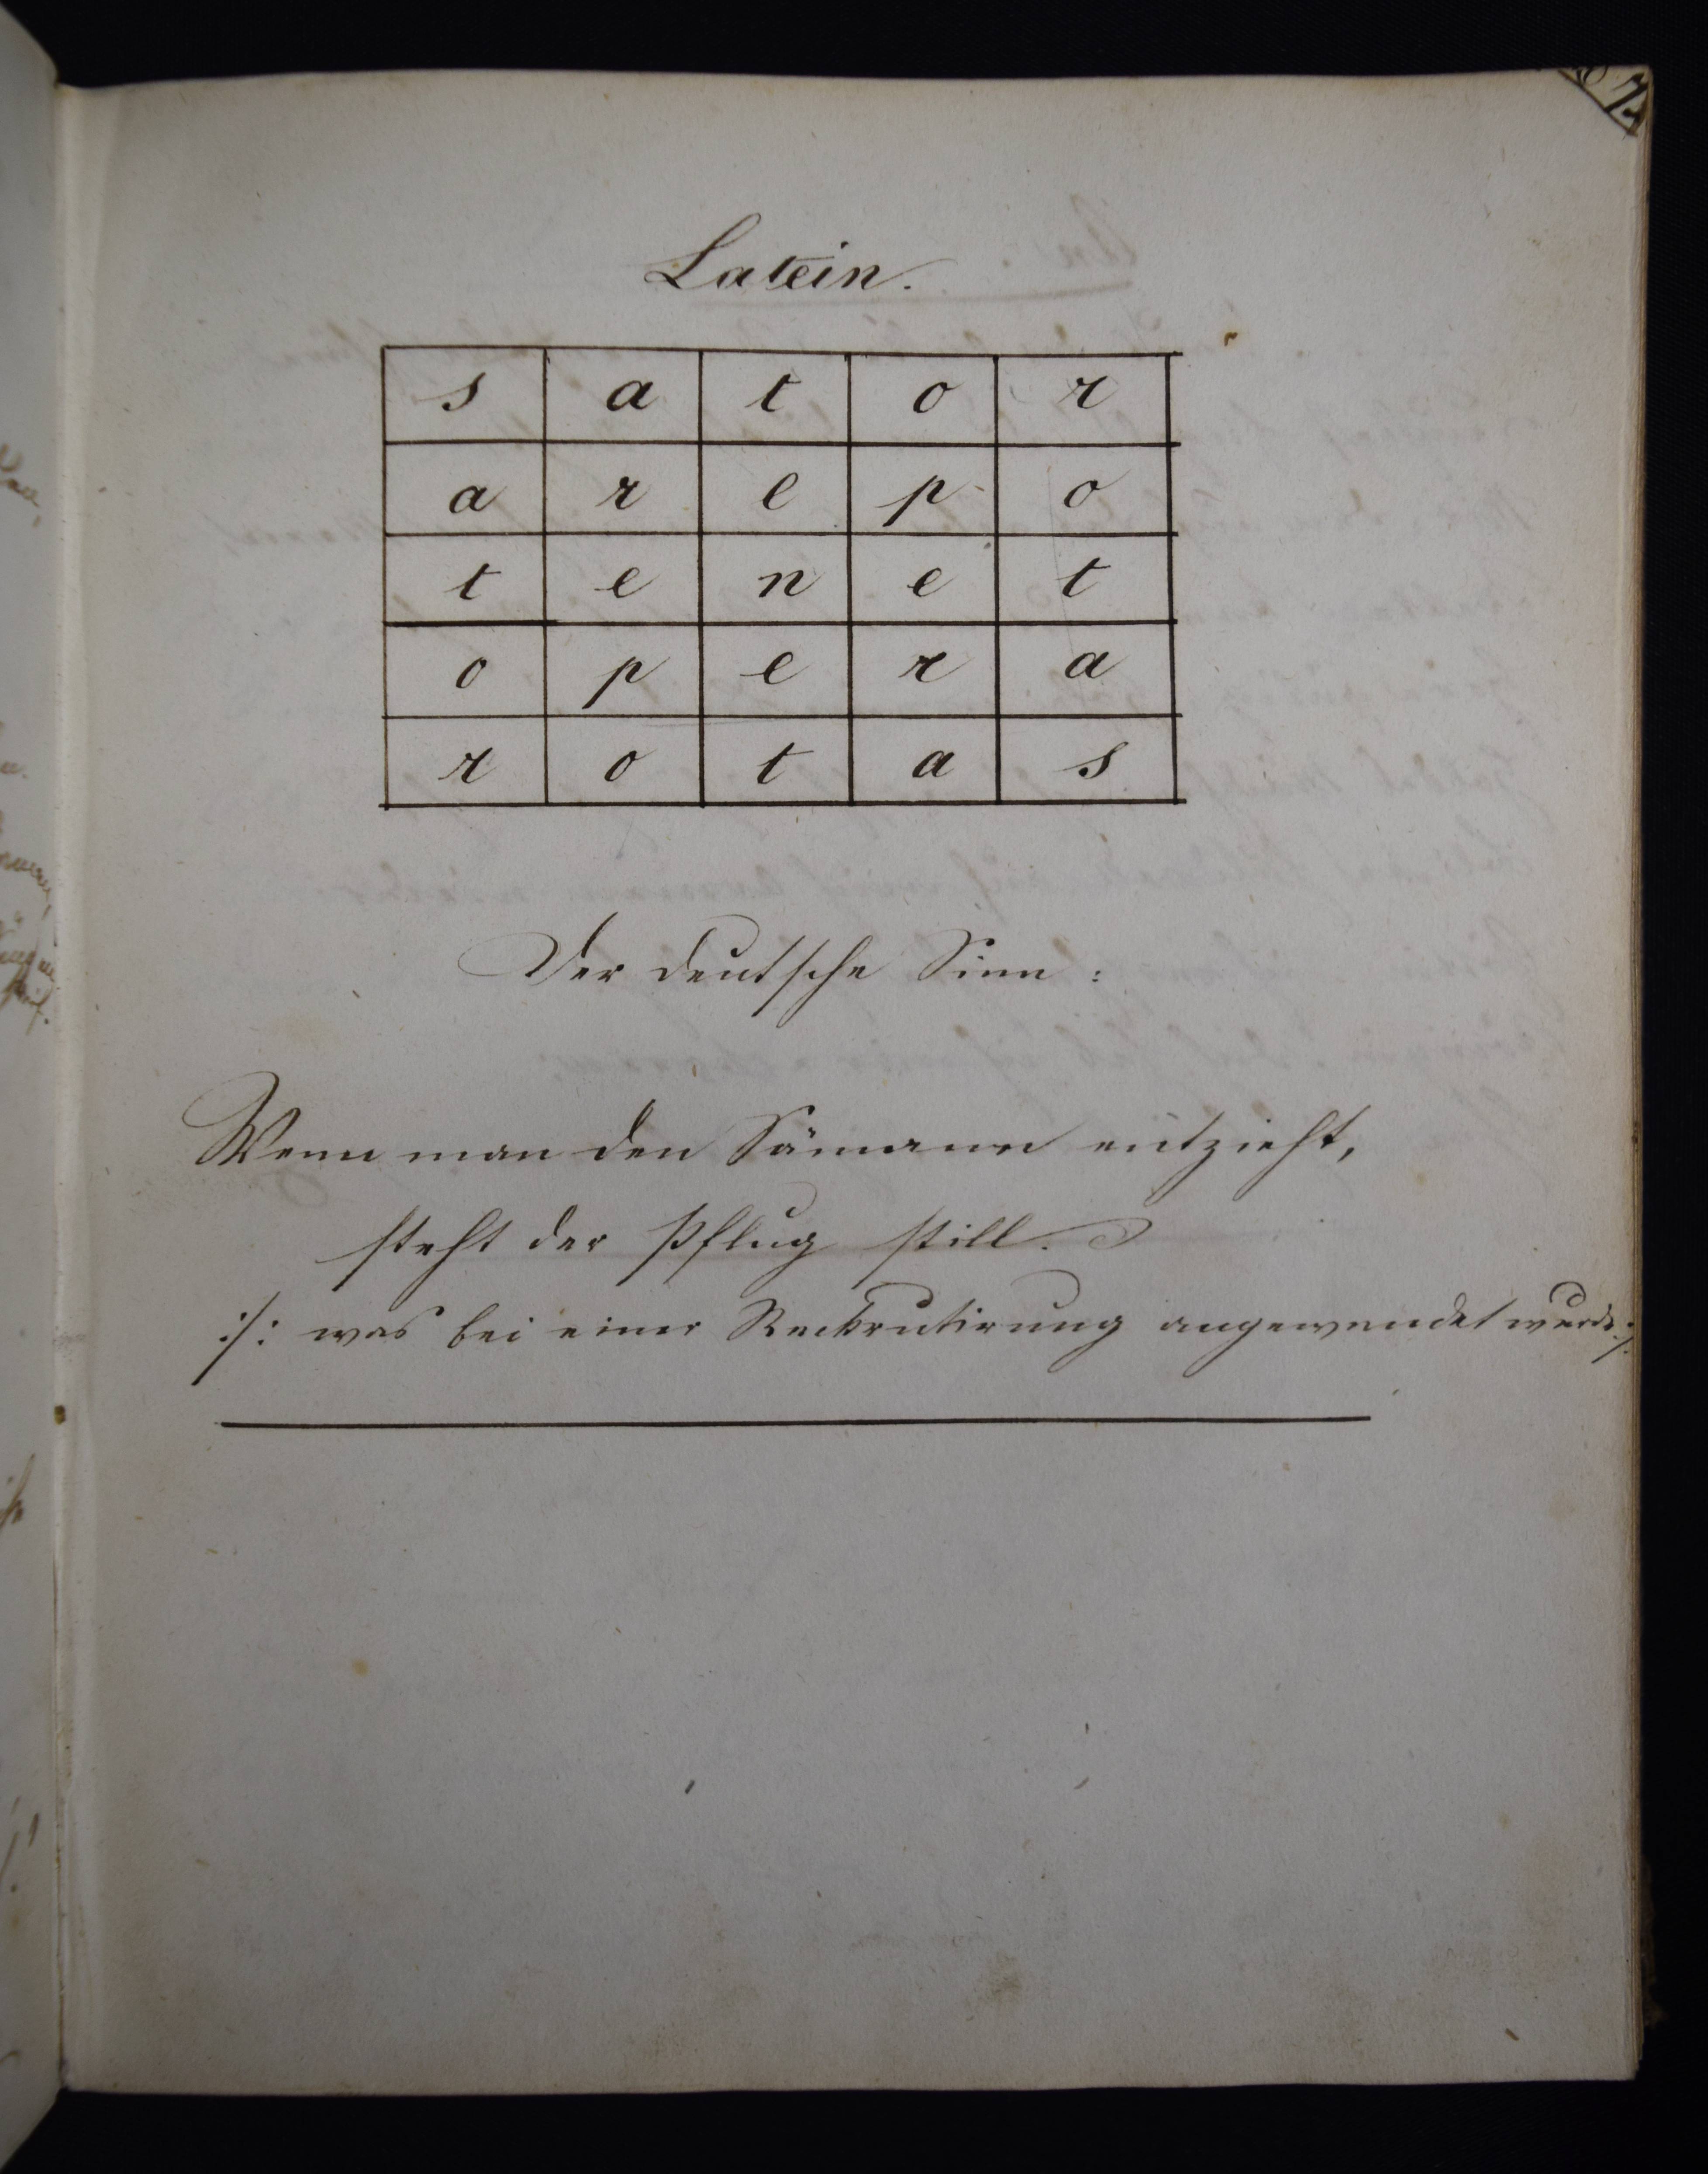 7.
Latein.
s a t o r
a r e p o
t e n e t
o p e r a
r o t a s
Der deutsche Sinn:
Wenn man den Sämann entzieht,
steht der Pflug still.
:/: was bei einer Reckrutirung angewendet wurde :/: